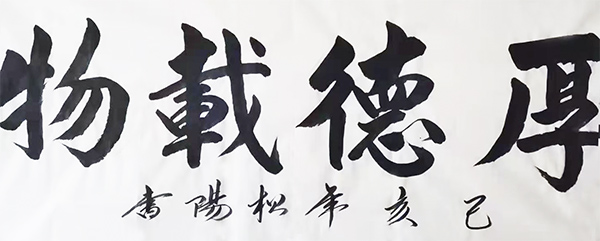 厚德載物
己亥年松陽書